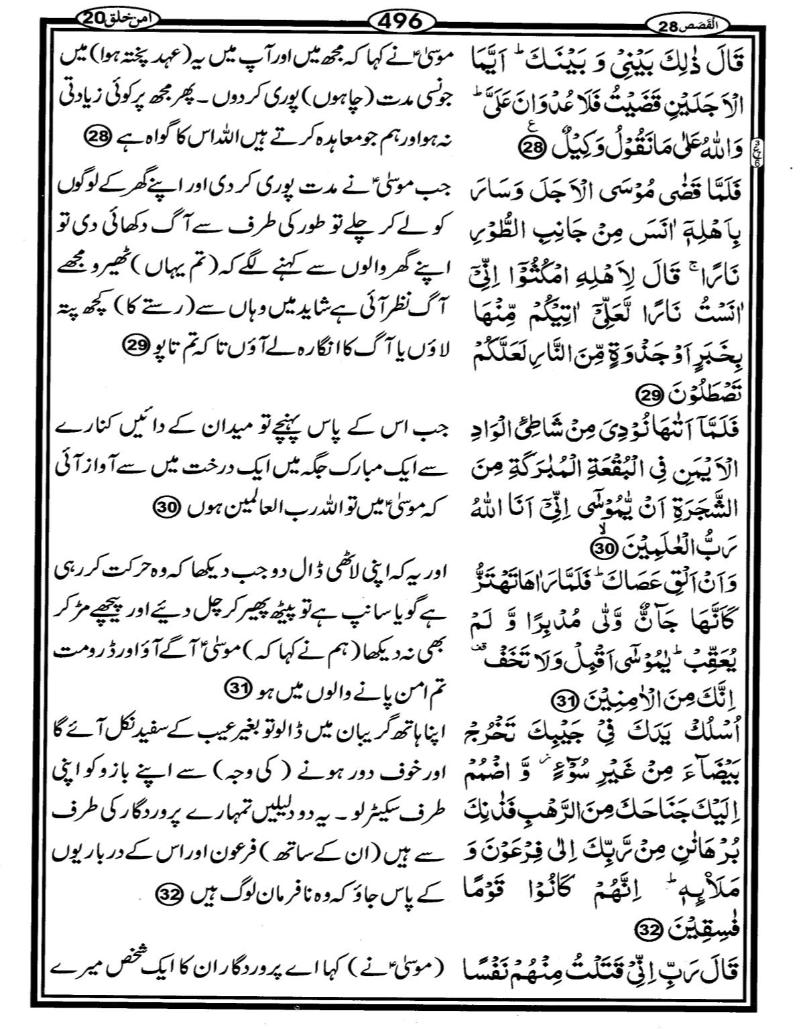 القصص 28
496
امن خلق 20
قَالَ ذٰلِكَ بَيْنِيْ وَ بَيْنَكَ ؕ اَيَّمَا
الْاَجَلَيْنِ قَضَيْتُ فَلَا عُدْوَانَ عَلَيَّ ؕ
وَاللّٰهُ عَلٰى مَا نَقُوْلُ وَكِيْلٌ ع 28
فَلَمَّا قَضٰى مُوْسَى الْاَجَلَ وَسَارَ
بِاَهْلِهٖٓ اٰنَسَ مِنْ جَانِبِ الطُّوْرِ
نَارًا ۚ قَالَ لِاَهْلِهِ امْكُثُوْٓا اِنِّيْٓ
اٰنَسْتُ نَارًا لَّعَلِّيْٓ اٰتِيْكُمْ مِّنْهَا
بِخَبَرٍ اَوْ جَذْوَةٍ مِّنَ النَّارِ لَعَلَّكُمْ
تَصْطَلُوْنَ 29
فَلَمَّآ اَتٰىهَا نُوْدِيَ مِنْ شَاطِئِ الْوَادِ
الْاَيْمَنِ فِي الْبُقْعَةِ الْمُبٰرَكَةِ مِنَ
الشَّجَرَةِ اَنْ يّٰمُوْسٰٓى اِنِّيْٓ اَنَا اللّٰهُ
رَبُّ الْعٰلَمِيْنَ ۙ 30
وَاَنْ اَلْقِ عَصَاكَ ؕ فَلَمَّا رَاٰهَا تَهْتَزُّ
كَاَنَّهَا جَآنٌّ وَّلّٰى مُدْبِرًا وَّ لَمْ
يُعَقِّبْ ؕ يٰمُوْسٰٓى اَقْبِلْ وَلَا تَخَفْ ۫
اِنَّكَ مِنَ الْاٰمِنِيْنَ 31
اُسْلُكْ يَدَكَ فِيْ جَيْبِكَ تَخْرُجْ
بَيْضَآءَ مِنْ غَيْرِ سُوْٓءٍ ۫ وَّ اضْمُمْ
اِلَيْكَ جَنَاحَكَ مِنَ الرَّهْبِ فَذٰنِكَ
بُرْهَانٰنِ مِنْ رَّبِّكَ اِلٰى فِرْعَوْنَ وَ
مَلَا۟ئِهٖ ؕ اِنَّهُمْ كَانُوْا قَوْمًا
فٰسِقِيْنَ 32
قَالَ رَبِّ اِنِّيْ قَتَلْتُ مِنْهُمْ نَفْسًا
موسیٰؑ نے کہا کہ مجھ میں اور آپ میں یہ (عہد پختہ ہوا) میں
جونسی مدت (چاہوں) پوری کر دوں ۔ پھر مجھ پر کوئی زیادتی
نہ ہو اور ہم جو معاہدہ کرتے ہیں اللہ اس کا گواہ ہے 28
جب موسیٰؑ نے مدت پوری کر دی اور اپنے گھر کے لوگوں
کو لے کر چلے تو طور کی طرف سے آگ دکھائی دی تو
اپنے گھر والوں سے کہنے لگے کہ (تم یہاں) ٹھیرو مجھے
آگ نظر آئی ہے شاید میں وہاں سے (رستے کا) کچھ پتہ
لاؤں یا آگ کا انگارہ لے آؤں تاکہ تم تاپو 29
جب اس کے پاس پہنچے تو میدان کے دائیں کنارے
سے ایک مبارک جگہ میں ایک درخت میں سے آواز آئی
کہ موسیٰؑ میں تو اللہ رب العالمین ہوں 30
اور یہ کہ اپنی لاٹھی ڈال دو جب دیکھا کہ وہ حرکت کر رہی
ہے گویا سانپ ہے تو پیٹھ پھیر کر چل دیئے اور پیچھے مڑ کر
بھی نہ دیکھا (ہم نے کہا کہ) موسیٰؑ آگے آؤ اور ڈرو مت
تم امن پانے والوں میں ہو 31
اپنا ہاتھ گریبان میں ڈالو تو بغیر عیب کے سفید نکل آئے گا
اور خوف دور ہونے (کی وجہ) سے اپنے بازو کو اپنی
طرف سکیڑ لو ۔ یہ دو دلیلیں تمہارے پروردگار کی طرف
سے ہیں (ان کے ساتھ) فرعون اور اس کے درباریوں
کے پاس جاؤ کہ وہ نافرمان لوگ ہیں 32
(موسیٰؑ نے) کہا اے پروردگار ان کا ایک شخص میرے